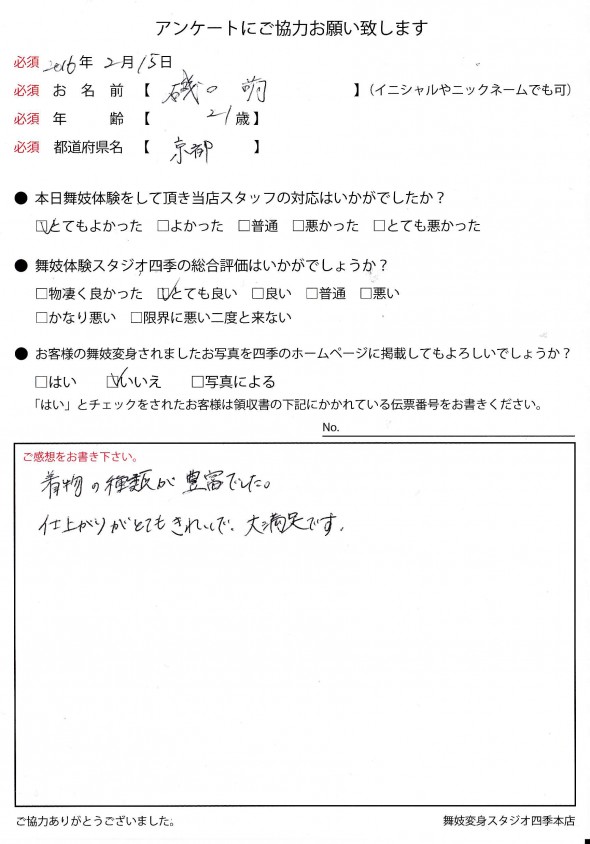 アンケートにご協力お願い致します
必須 2016年 2月15日
必須 お名前【 磯○ 萌 】(イニシャルやニックネームでも可)
必須 年齢【 21歳】
必須 都道府県名【 京都 】
● 本日舞妓体験をして頂き当店スタッフの対応はいかがでしたか?
☑とてもよかった □よかった □普通 □悪かった □とても悪かった
● 舞妓体験スタジオ四季の総合評価はいかがでしょうか?
□物凄く良かった ☑とても良い □良い □普通 □悪い
□かなり悪い □限界に悪い二度と来ない
● お客様の舞妓変身されましたお写真を四季のホームページに掲載してもよろしいでしょうか?
□はい ☑いいえ □写真による
「はい」とチェックをされたお客様は領収書の下記にかかれている伝票番号をお書きください。
No.
ご感想をお書き下さい。
着物の種類が豊富でした。
仕上がりがとてもきれいで、大満足です。
ご協力ありがとうございました。
舞妓変身スタジオ四季本店